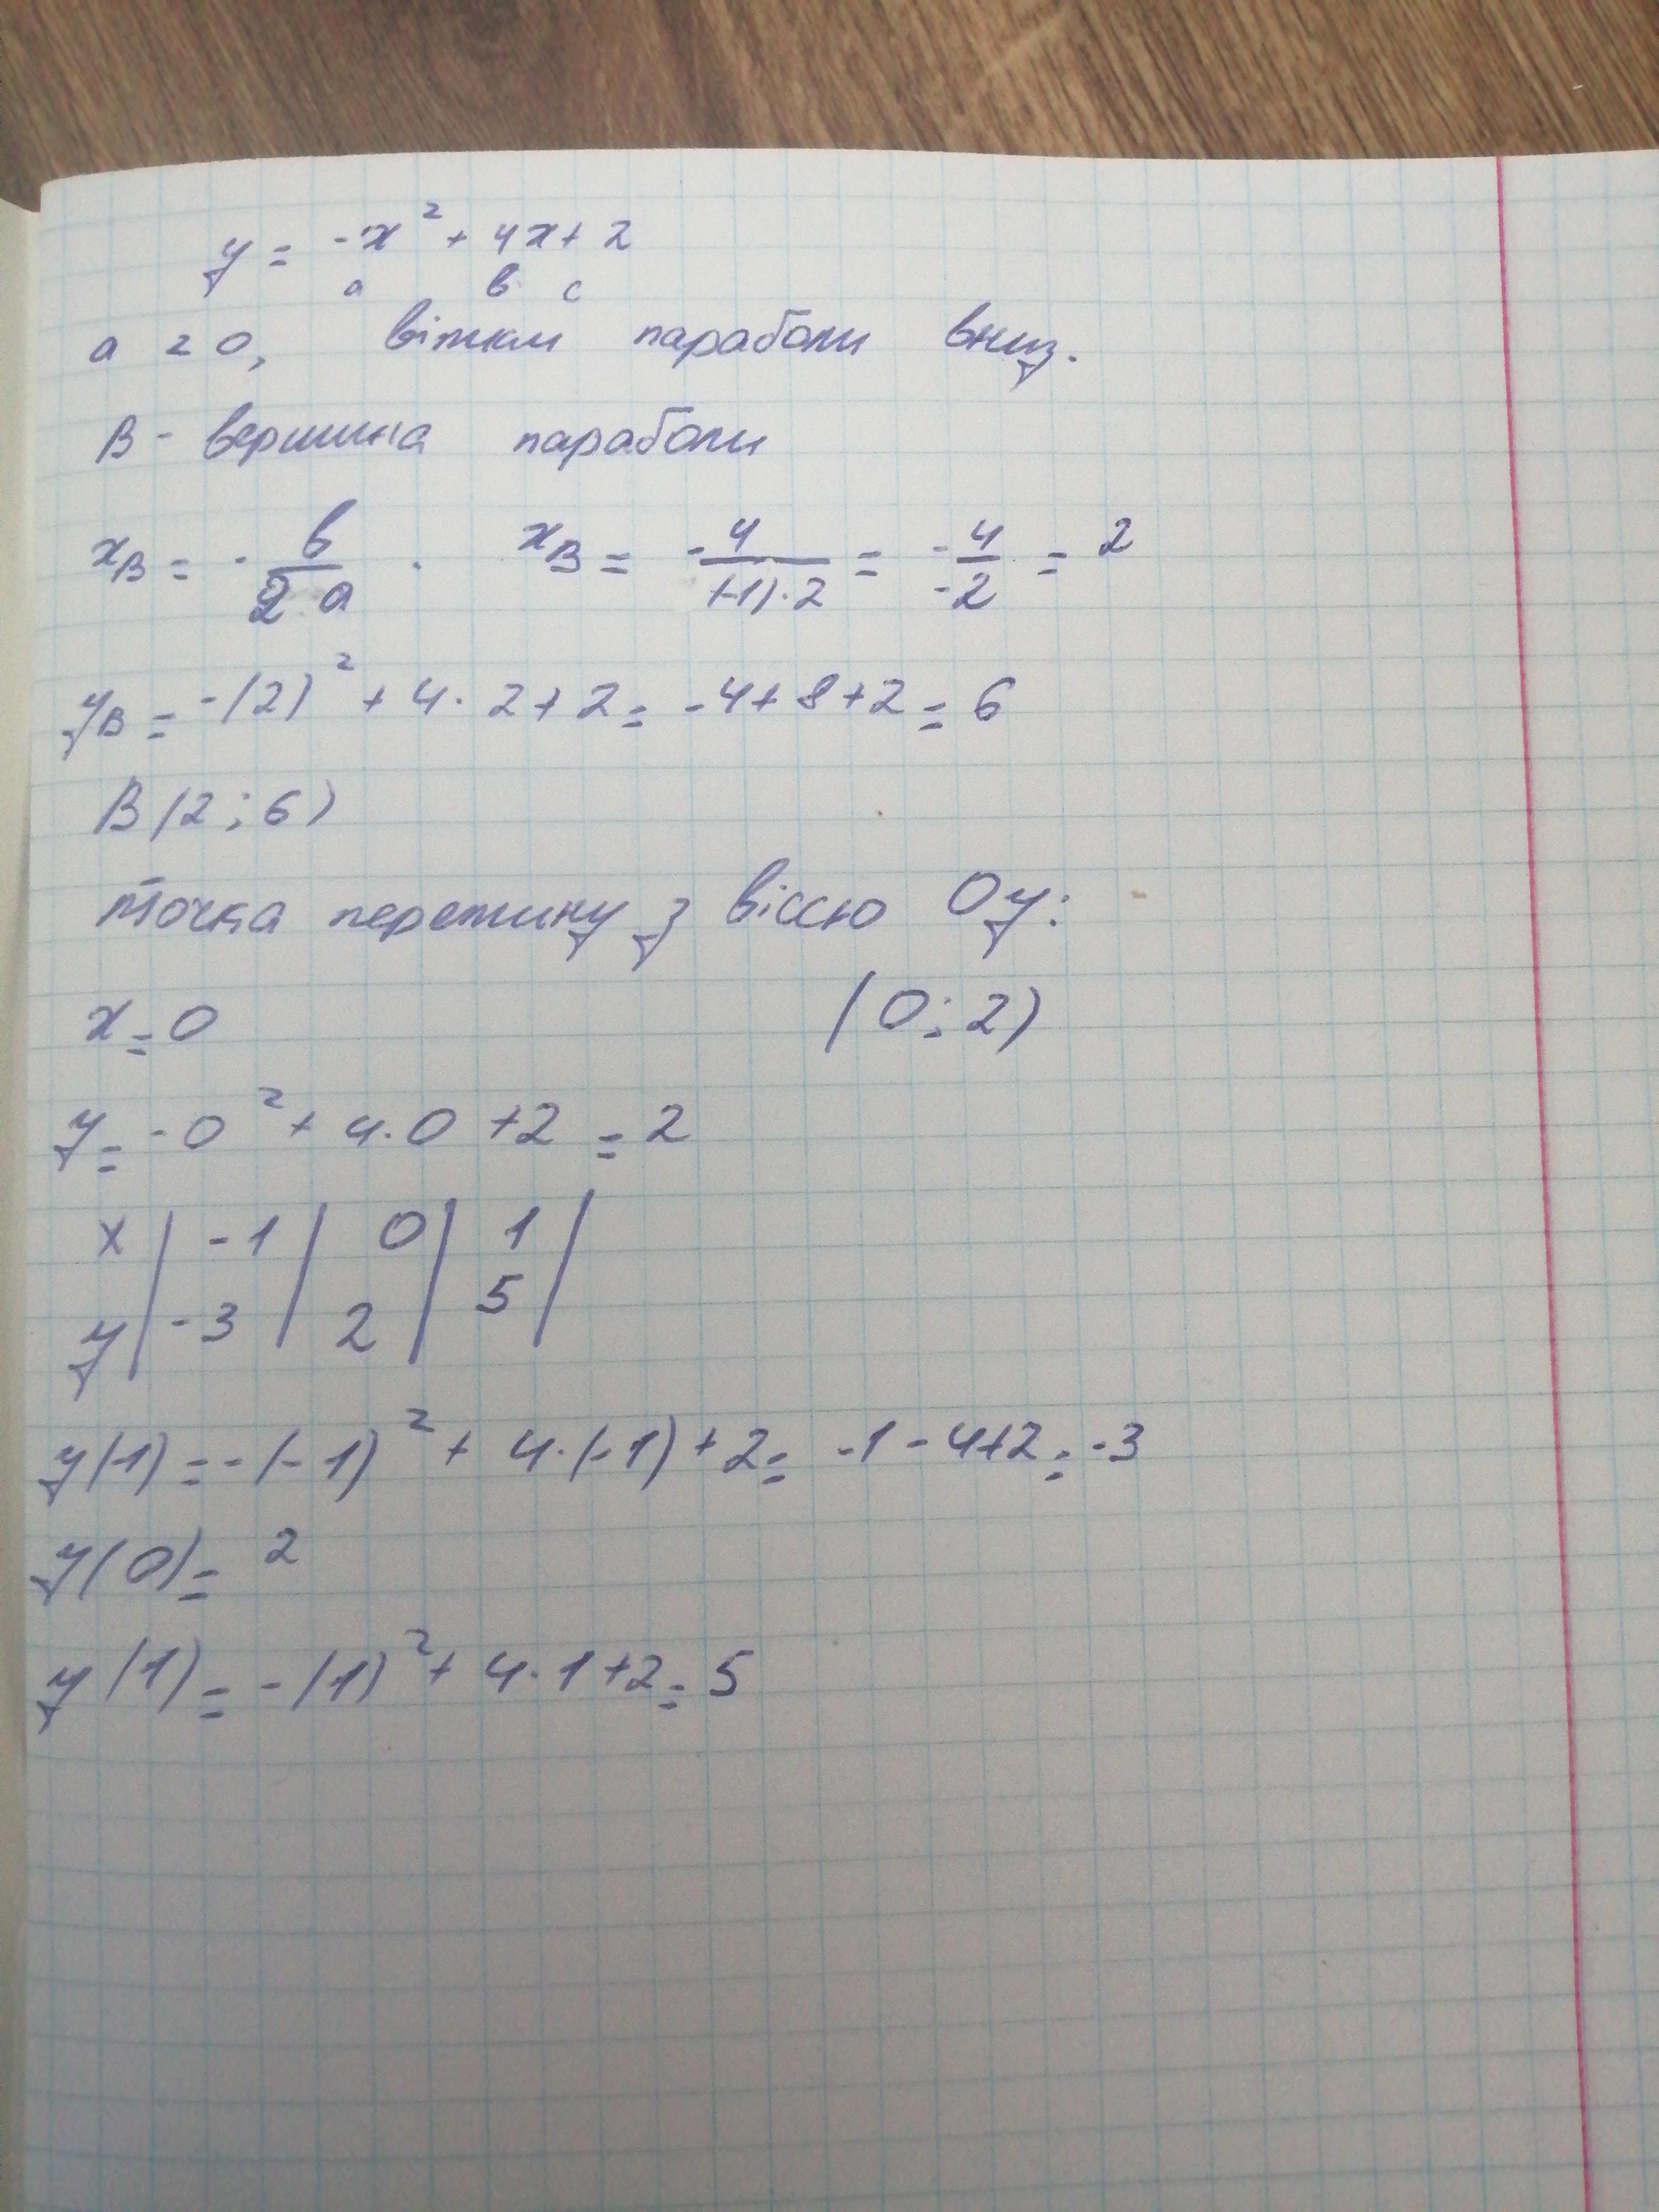 y = -x² + 4x + 2
a в c
a < 0, вітки параболи вниз.
В - вершина параболи
xВ = - в/2a . xВ = -4/(-1)·2 = -4/-2 = 2
yВ = -(2)² + 4·2+2 = -4+8+2 = 6
В(2;6)
Точка перетину з віссю Oy:
x = 0 (0;2)
y = -0² + 4·0 +2 = 2
x | -1 | 0 | 1 |
y | -3 | 2 | 5 |
y(-1) = -(-1)² + 4·(-1) + 2 = -1 - 4+2 = -3
y(0) = 2
y(1) = -(1)² + 4·1+2 = 5